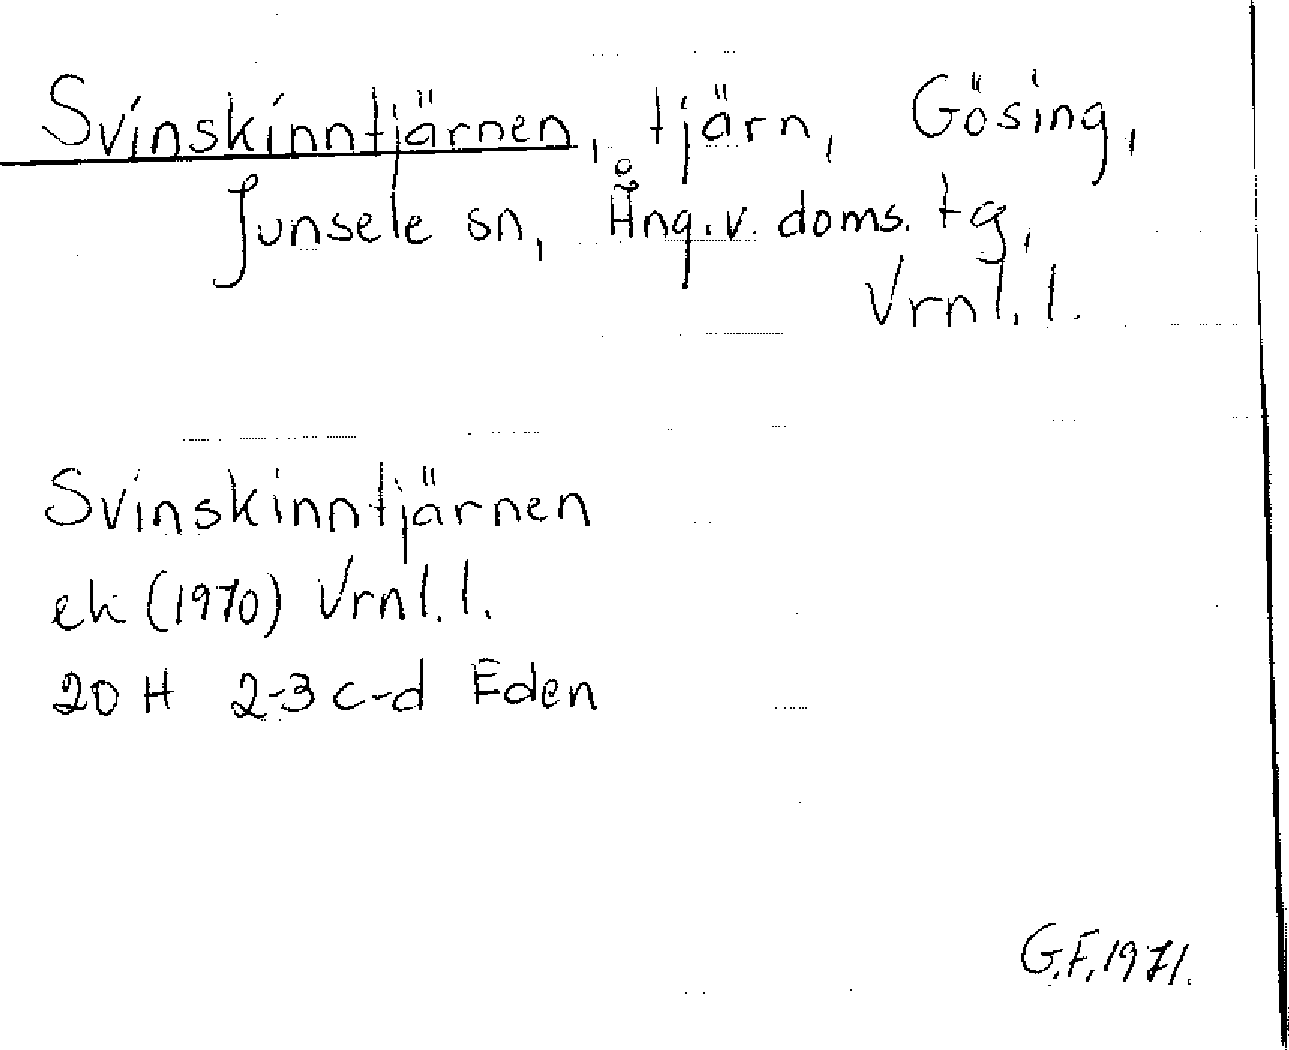 Svinskinntjärnen, tjärn, Gösing,
Junsele sn, Ång.v. doms. tg,
Vrnl. l.
Svinskinntjärnen
ek (1970) Vrnl. l.
20 H 2-3 c-d Eden
G.F. 1971.